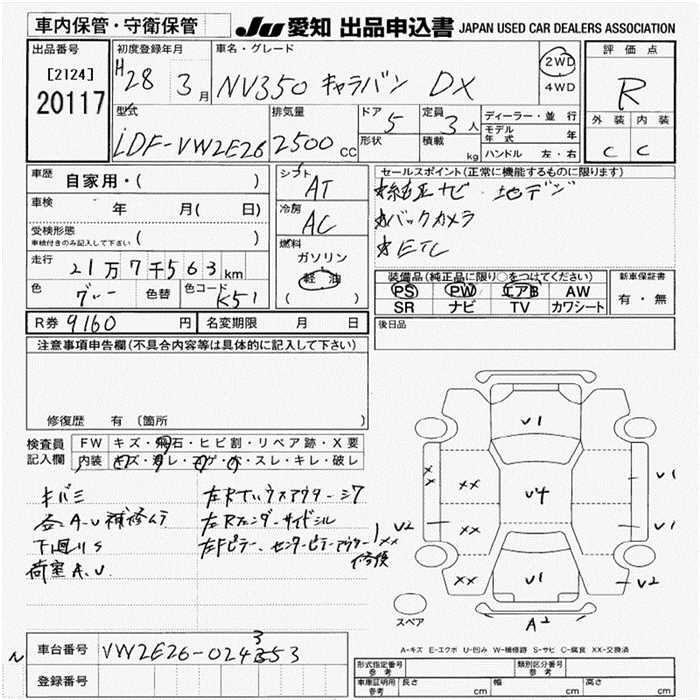 車内保管・守衛保管 JU 愛知 出品申込書 JAPAN USED CAR DEALERS ASSOCIATION
出品番号 初度登録年月 車名・グレード 2WD 評価点
[2124] H28 3月 NV350 キャラバン DX 4WD R
20117
型式 排気量 ドア 5 定員 3人 ディーラー・並行 外装 内装
LDF-VW2E26 2500cc 形状 積載 kg モデル年式 年 C C
ハンドル 左・右
車歴 自家用・( ) シフト AT セールスポイント(正常に機能するものに限ります)
車検 年 月( 日) 冷房 AC ☆純正ナビ・地デジ
受検形態 ( ) ☆バックカメラ
車検付きのみ記入して下さい 燃料 ☆ETC
走行 21万7千563km ガソリン 装備品(純正品に限り○をつけてください) 新車保証書
色 グレー 色替 色コード K51 ( 軽油 ) PS PW エアB AW 有・無
SR ナビ TV カワシート
R券 9160円 名変期限 月 日 後日品
注意事項申告欄(不具合内容等は具体的に記入して下さい)
修復歴 有 〔箇所 〕
検査員 FW キズ・飛石・ヒビ割・リペア跡・X要
記入欄 内装 キズ・汚レ・コゲ・穴・スレ・キレ・破レ
キバミ
各A.U補修ムラ
下廻りS
荷室A.U
左Rフェンダーサイドシル
左Fピラー、センターピラーアウター
XX
修復
V1
XX
V1
XX V4
V2 XX XX V1
XX V1 V2
A2
スペア
A-キズ E-エクボ U-凹み W-補修跡 S-サビ C-腐食 XX-交換済
車台番号 VW2E26-024353
3
登録番号
形式指定番号 参考 類別区分番号 参考
車庫証明用 参考 長さ cm 幅 cm 高さ cm